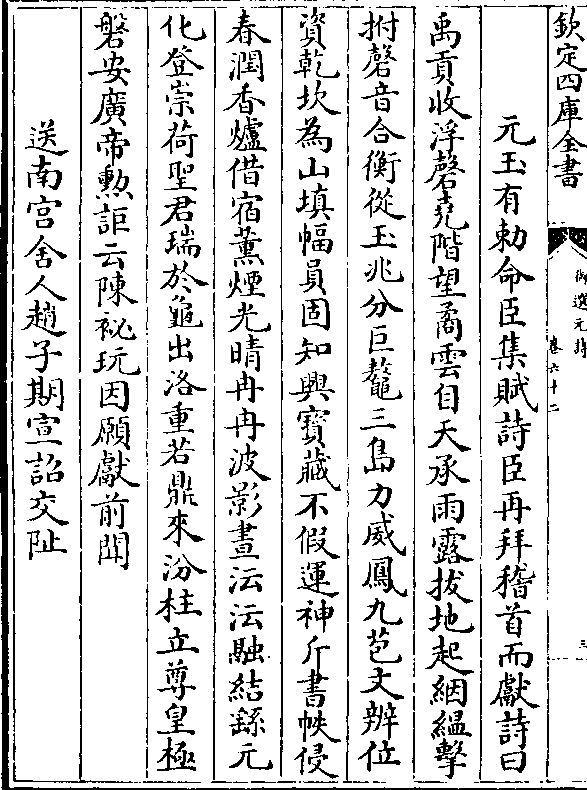 欽定四庫全書
御選元詩
卷六十二
三
元玉有勅命臣集賦詩臣再拜稽首而獻詩曰
禹貢收浮磬堯階望矞雲自天承雨露拔地起絪縕擊
拊磬音合衡從玉兆分巨鼇三島力威鳳九苞文辨位
資乾坎為山填幅員固知興寶藏不假運神斤書帙侵
春潤香爐借宿薰煙光晴冉冉波影晝沄沄融結繇元
化登崇荷聖君瑞於龜出洛重若鼎來汾柱立尊皇極
磐安廣帝勲詎云陳祕玩因願獻前聞
送南宫舍人趙子期宣詔交阯